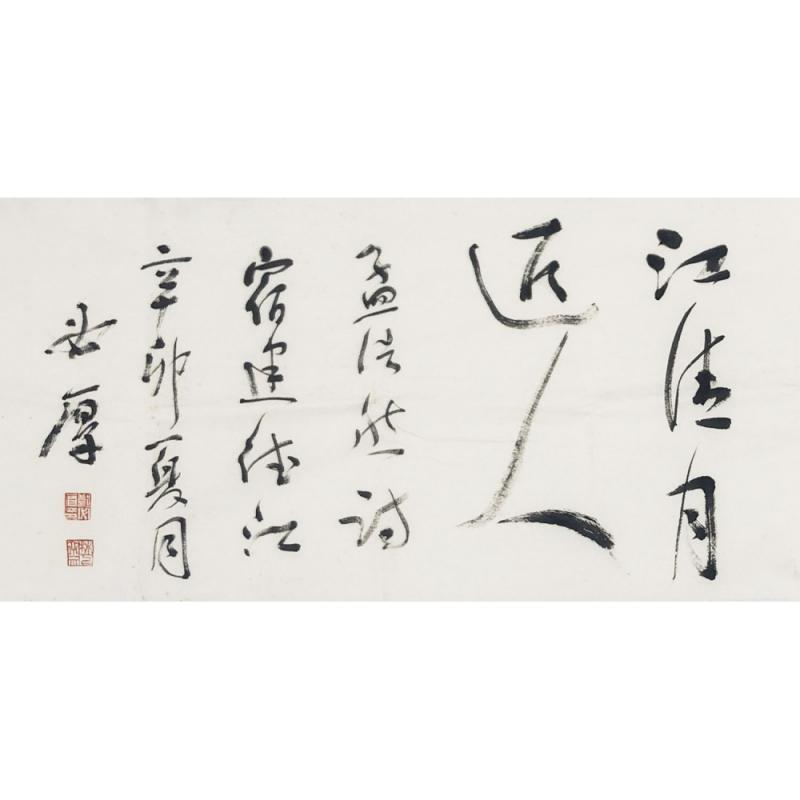 江清月
近人
孟浩然詩
宿建德江
辛卯夏月
世厚